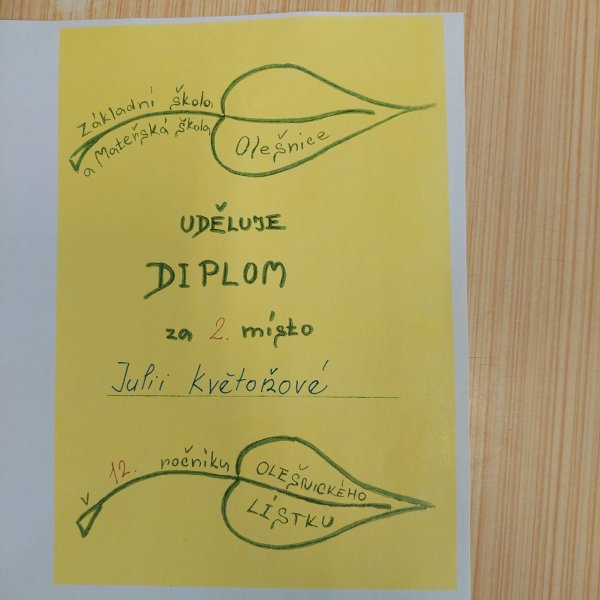 Základní škola
a Mateřská škola
Olešnice
UDĚLUJE
DIPLOM
za 2. místo
Julii Květoňové
V 12. ročníku
OLEŠNICKÉHO
LÍSTKU